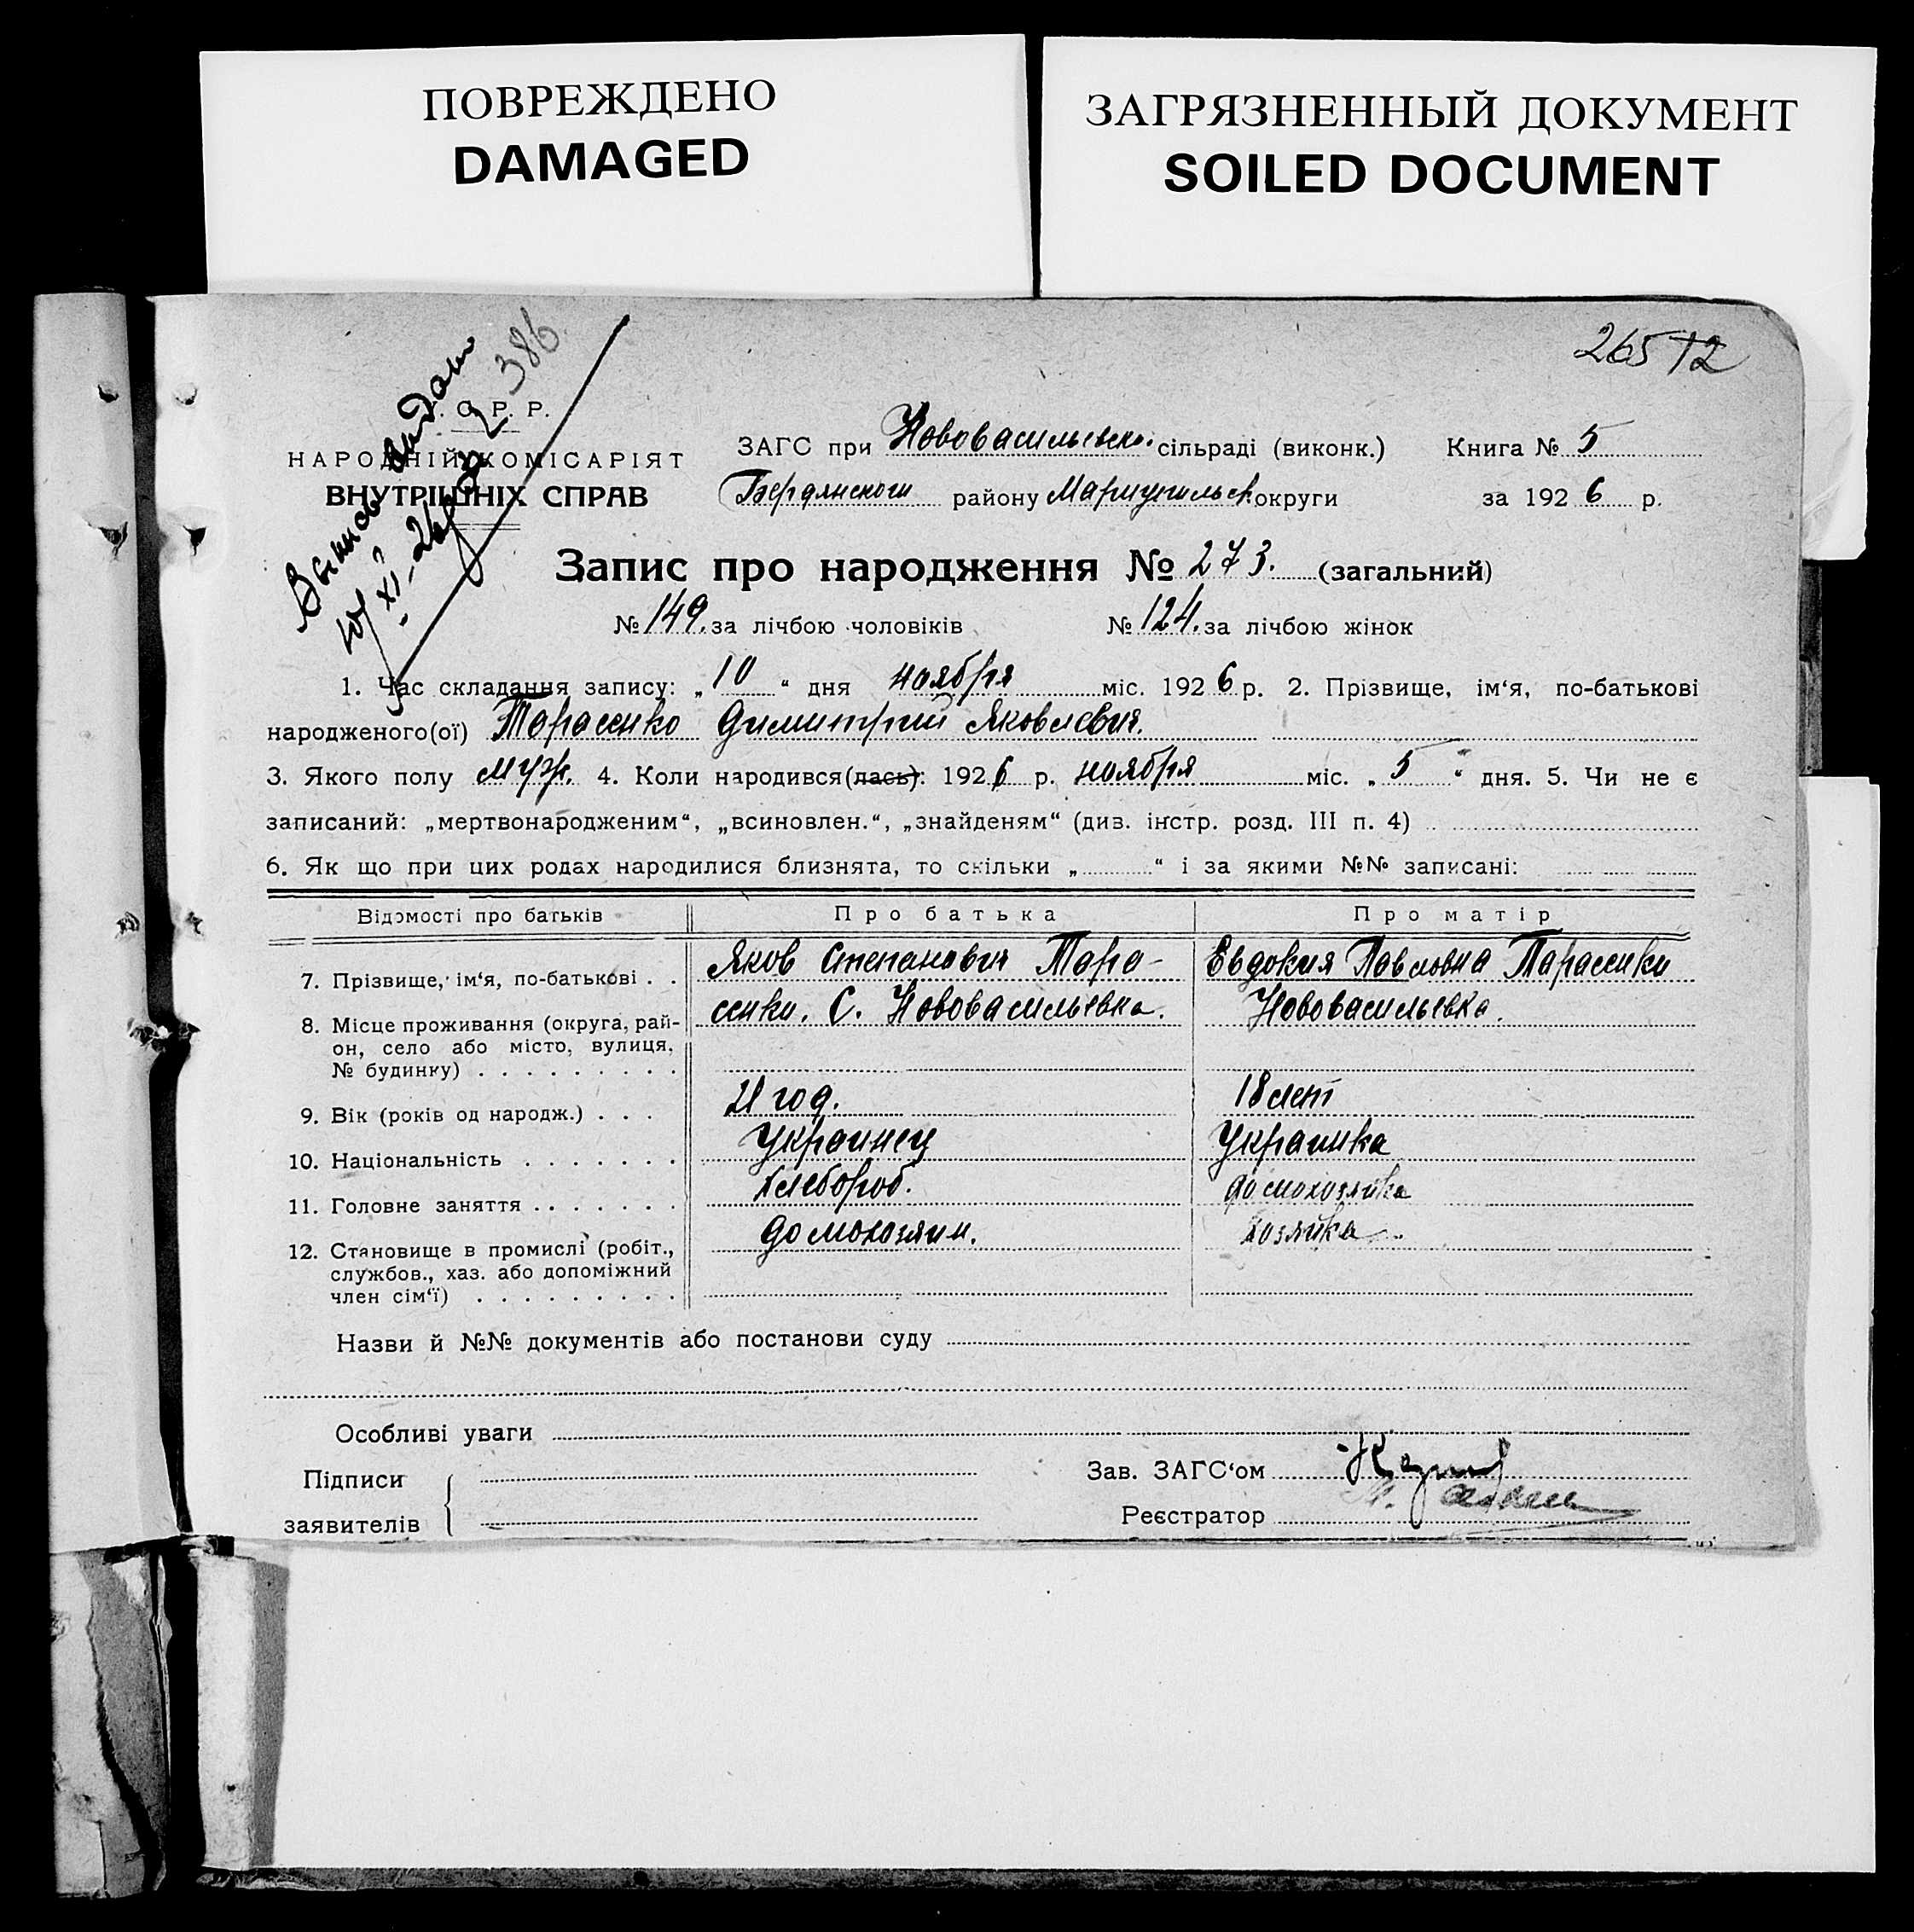 ПОВРЕЖДЕНО
DAMAGED
ЗАГРЯЗНЕННЫЙ ДОКУМЕНТ
SOILED DOCUMENT
265 12
386
. С. Р. Р.
НАРОДНІЙ КОМІСАРІЯТ
ВНУТРІШНІХ СПРАВ
10/XI-26
ЗАГС при Нововасильевск. сільраді (виконк.) Книга № 5
Бердянского району Мариупольск. округи за 1926 р.
Запис про народження № 273. (загальний)
№ 149. за лічбою чоловіків № 124. за лічбою жінок
1. Час складання запису: „10“ дня ноября міс. 1926 р. 2. Прізвище, ім‘я, по-батькові
народженого(ої) Тарасенко Димитрий Яковлевич.
3. Якого полу муж. 4. Коли народився(лась): 1926 р. ноября міс. „5“ дня. 5. Чи не є
записаний: „мертвонародженим“, „всиновлен.“, „знайденям“ (див. інстр. розд. III п. 4)
6. Як що при цих родах народилися близнята, то скільки „ “ і за якими №№ записані:
Відомості про батьків Про батька Про матір
7. Прізвище, ім‘я, по-батькові . . Яков Степанович Тара- Евдокия Павловна Тарасенко
сенко. С. Нововасильевка. Нововасильевка.
8. Місце проживання (округа, рай-
он, село або місто, вулиця,
№ будинку) . . . . . . . . .
9. Вік (років од народж.) . . . 21 год. 18 лет
10. Національність . . . . . . . Украинец Украинка
11. Головне заняття . . . . . . . хлебороб. домохозяйка
12. Становище в промислі (робіт., домохозяин. хозяйка
службов., хаз. або допоміжний
член сім‘ї) . . . . . . . . .
Назви й №№ документів або постанови суду
Особливі уваги
Підписи
заявителів
Зав. ЗАГС‘ом
Реєстратор